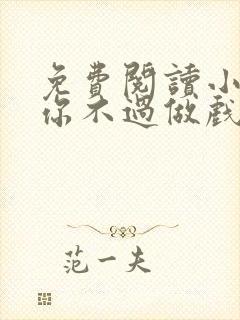 免費閱讀小
你不過做戲
范一夫